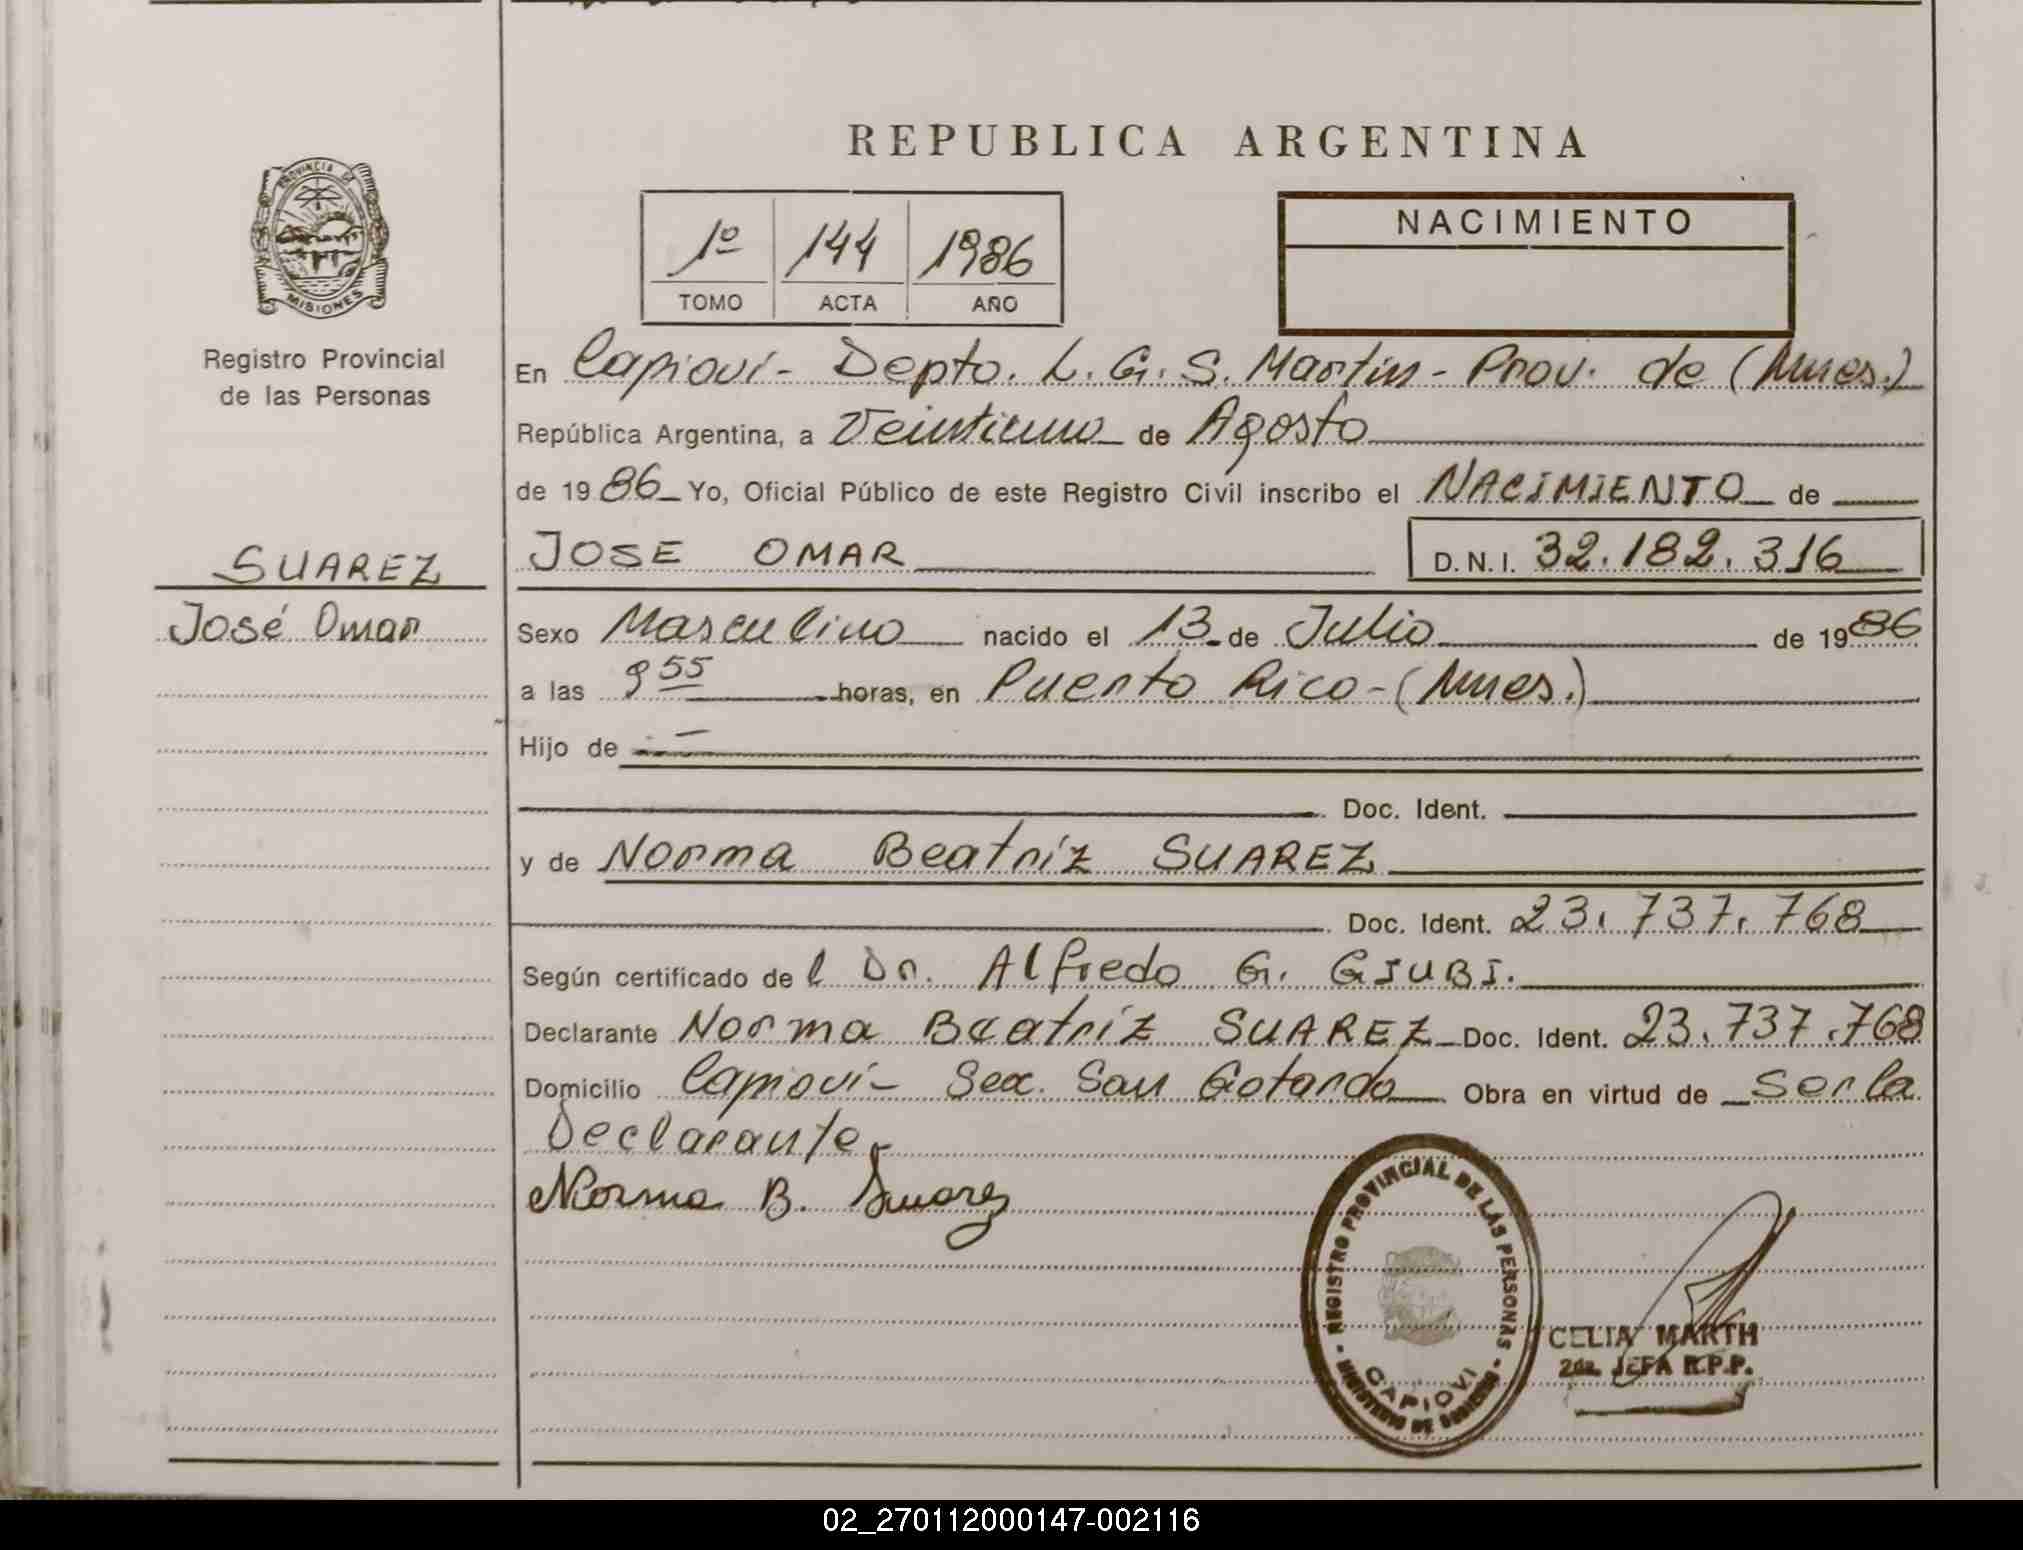 REPUBLICA ARGENTINA
PROVINCIA DE
MISIONES
Registro Provincial
de las Personas
SUAREZ
José Omar
1º 144 1986
TOMO ACTA AÑO
NACIMIENTO
En Capioví - Depto. L. G. S. Martín - Prov. de (Mnes.)
República Argentina, a Veintiuno de Agosto
de 1986 Yo, Oficial Público de este Registro Civil inscribo el NACIMIENTO de
JOSE OMAR D.N.I. 32.182.316
Sexo Masculino nacido el 13 de Julio de 1986
a las 9 55 horas, en Puerto Rico - (Mnes.)
Hijo de
Doc. Ident.
y de Norma Beatríz SUAREZ
Doc. Ident. 23.737.768
Según certificado de l Dr. Alfredo G. GIUBI.
Declarante Norma Beatríz SUAREZ Doc. Ident. 23.737.768
Domicilio Capioví - Sec. San Gotardo Obra en virtud de Ser la
Declarante.
Norma B. Suarez
REGISTRO PROVINCIAL DE LAS PERSONAS
CAPIOVI
MINISTERIO DE GOBIERNO
CELIA MARTH
2da. JEFA R.P.P.
02_270112000147-002116